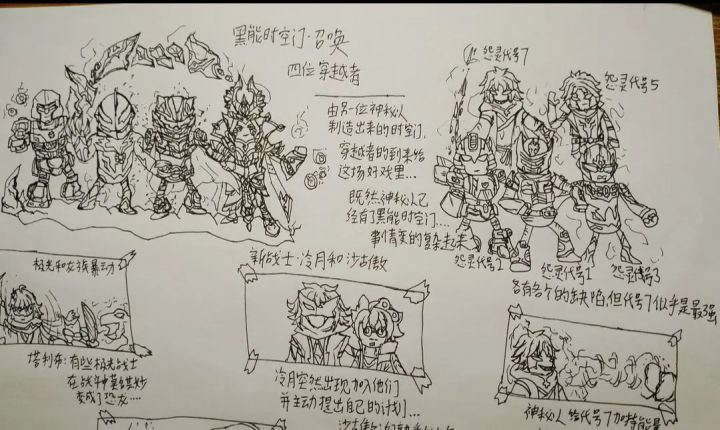 黑能时空门·召唤
四位穿越者
由另一位神秘人
制造出来的时空门,
穿越者的到来给
这场好戏里...
既然神秘人已
经有了黑能时空门...
事情变的复杂起来
怨灵代号7
怨灵代号5
怨灵代号2
怨灵代号1
怨灵代号3
各有各个的缺陷,但代号7似乎是最强
极光和龙族暴动
塔利奔:有些极光战士
在战斗中莫名其妙
变成了恐龙....
新战士·冷月和沙古傲
冷月突然出现加入他们
并主动提出自己的计划...
沙古傲:
神秘人给代号7加持能量